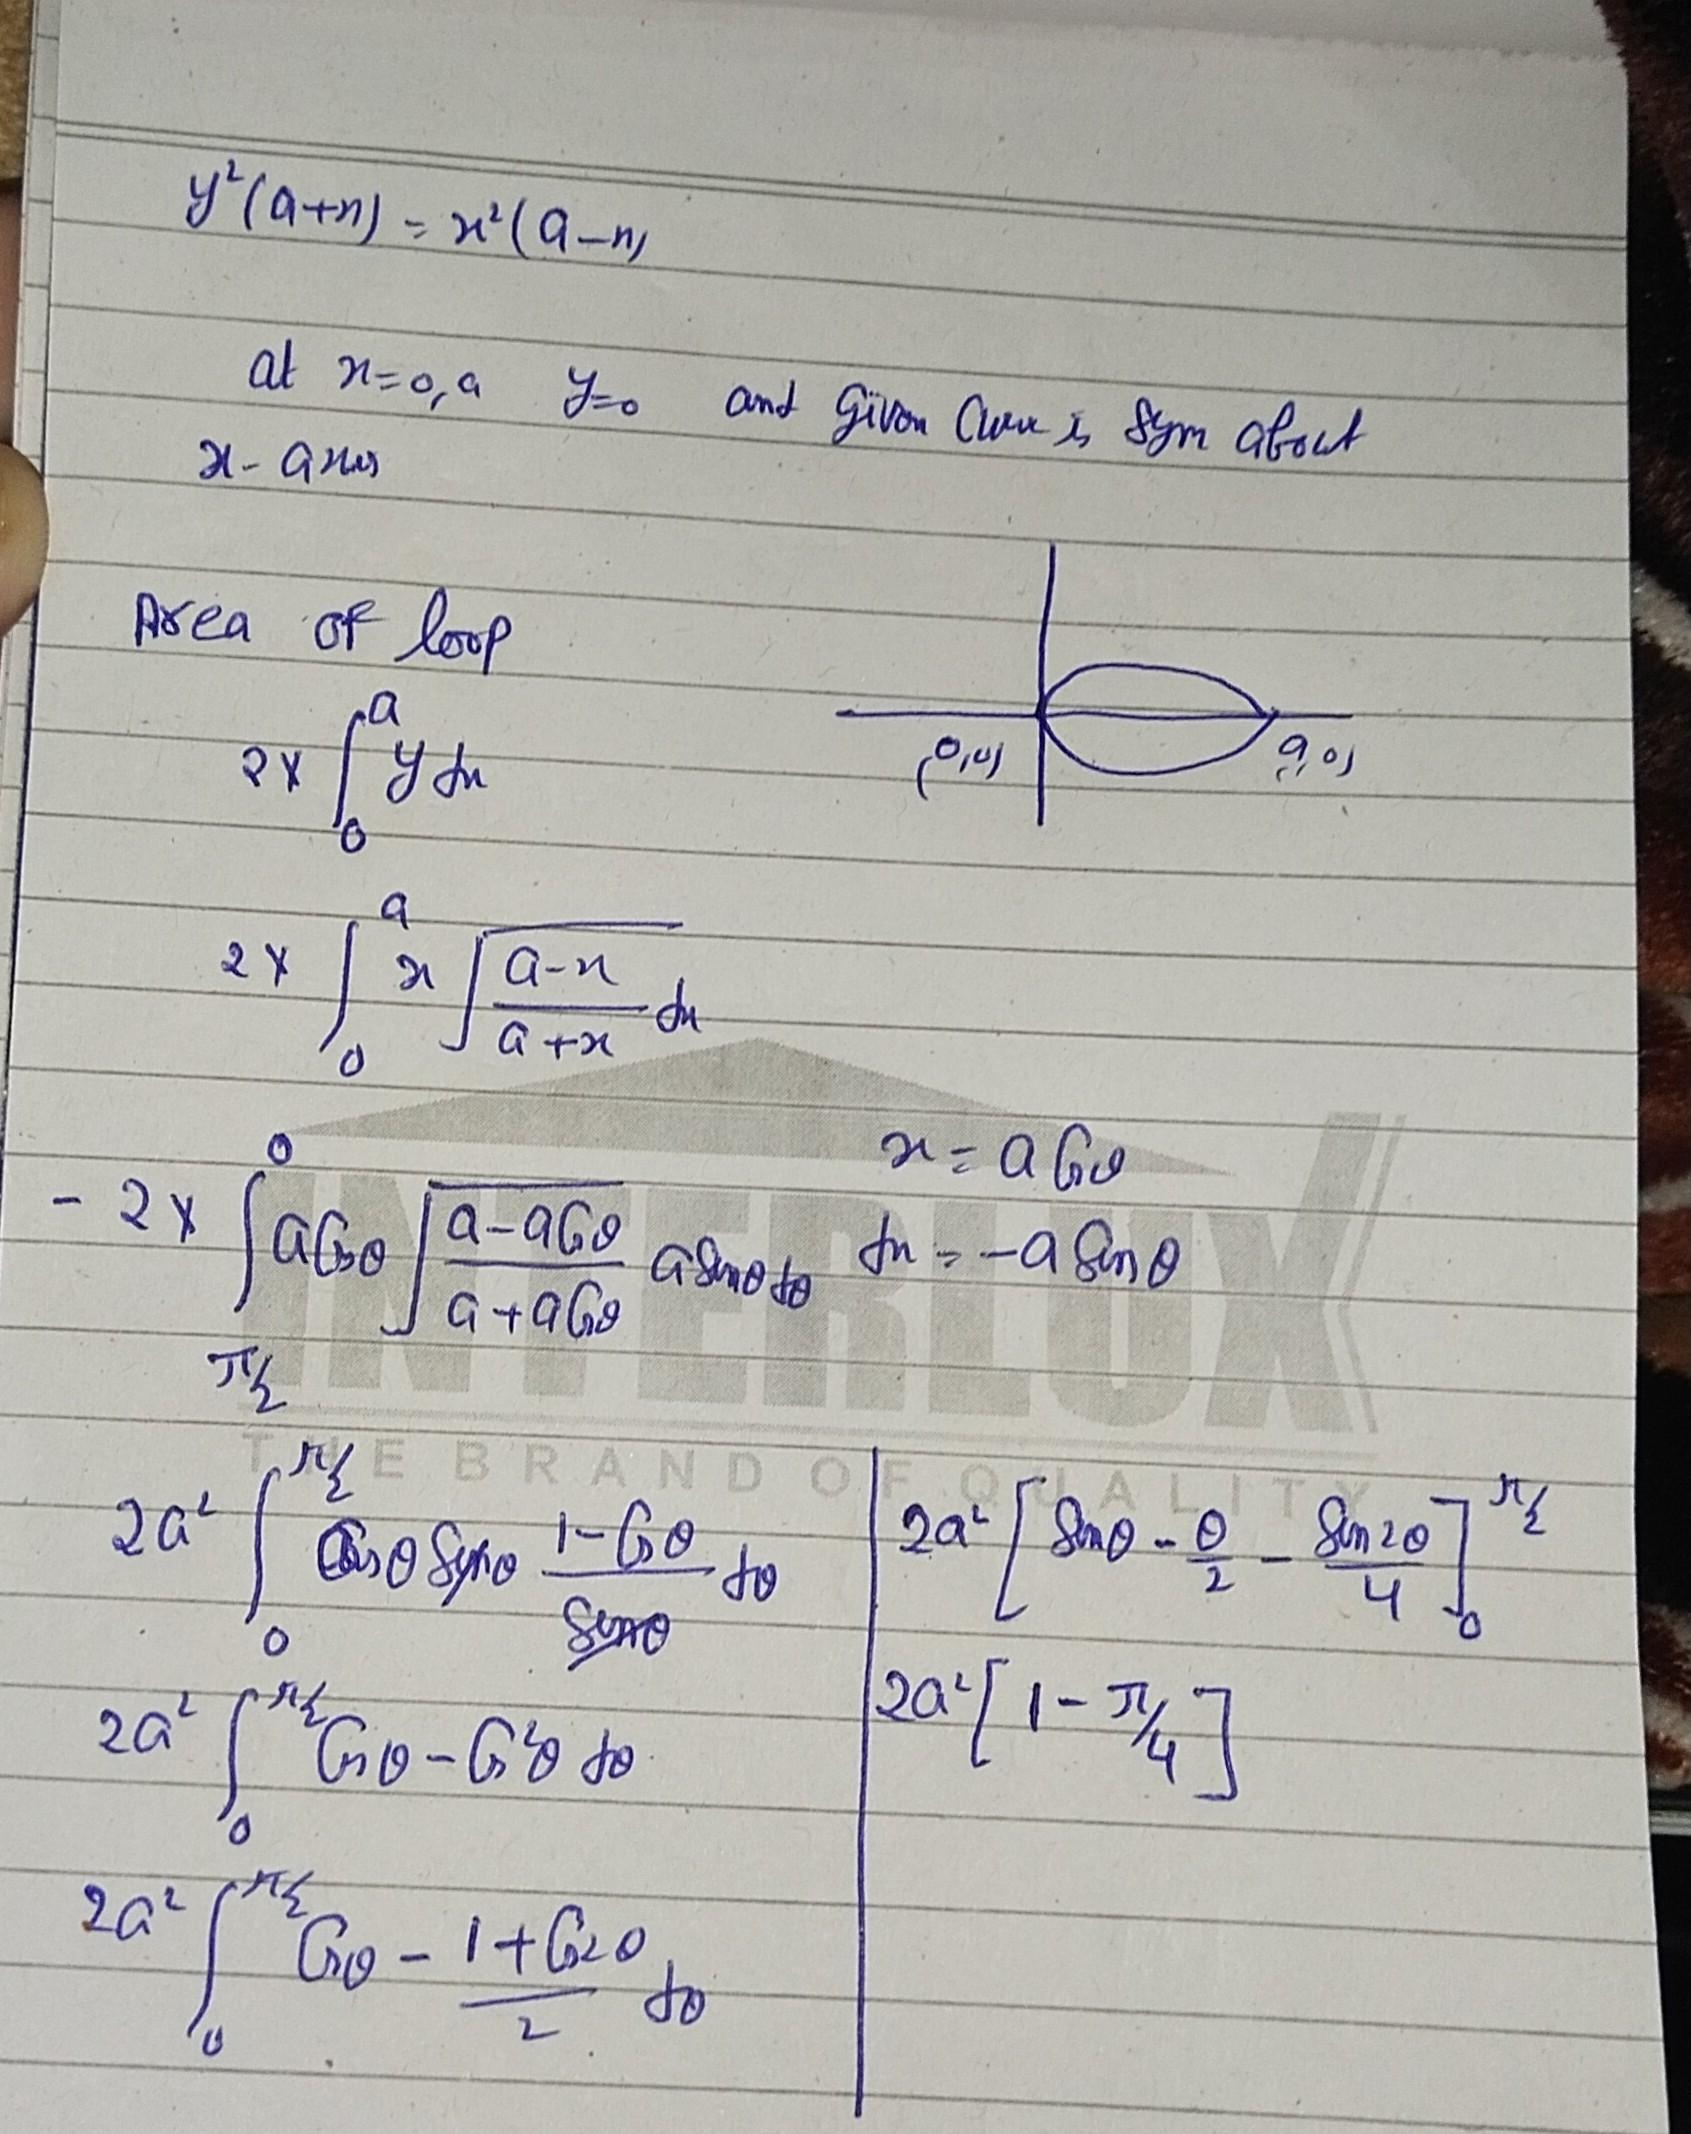 y²(a+x) = x²(a-x)
at x=0,a y=0 and Given Curve is Sym about
x-axis
Area of loop
2× ∫₀ᵃ y dx
(0,0) (a,0)
2× ∫₀ᵃ x √((a-x)/(a+x)) dx
x = a Cosθ
-2× ∫_{π/2}^{0} a Cosθ √((a-a Cosθ)/(a+a Cosθ)) a Sinθ dθ
dx = -a Sinθ
INTERLUX
THE BRAND OF QUALITY
2a² ∫₀^{π/2} Cosθ Sinθ (1-Cosθ)/Sinθ dθ
2a² ∫₀^{π/2} Cosθ - Cos²θ dθ
2a² ∫₀^{π/2} Cosθ - (1+Cos2θ)/2 dθ
2a² [Sinθ - θ/2 - Sin2θ/4]₀^{π/2}
2a² [1 - π/4]